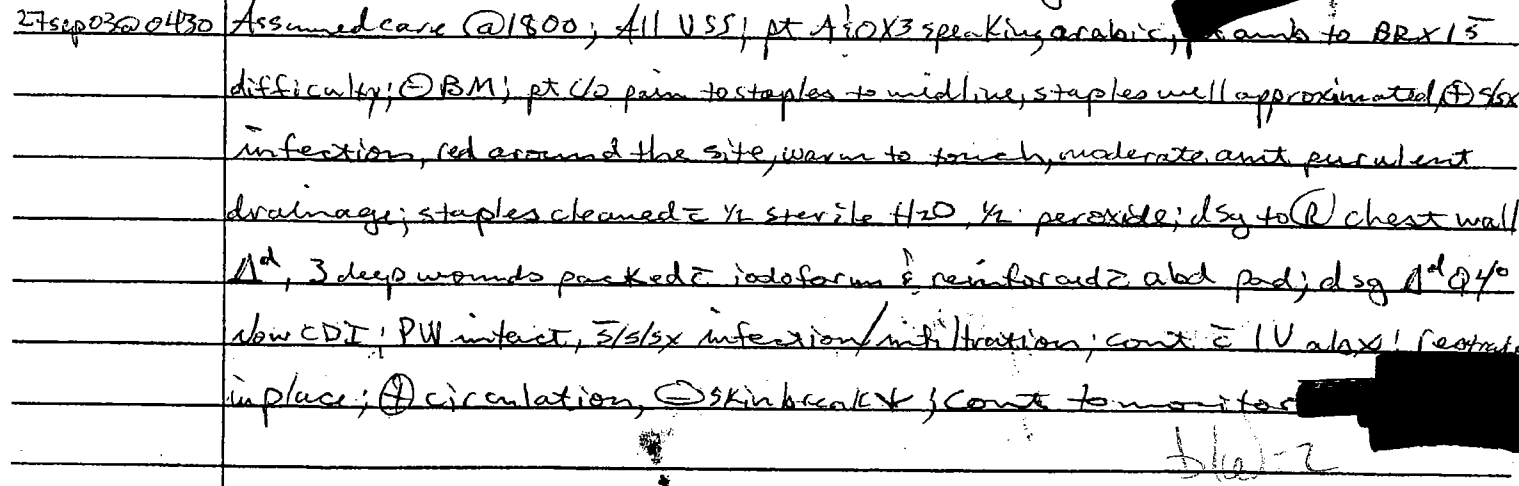 27sep03@0430 Assumed care @1800; All VSS; pt A&OX3 speaking arabic, amb to BR X1 s̄
difficulty; ⊖BM; pt c/o pain to staples to midline, staples well approximated, ⊕s/sx
infection, red around the site, warm to touch, moderate amt purulent
drainage; staples cleaned c̄ ½ sterile H2O, ½ peroxide; dsg to Ⓡ chest wall
Δd, 3 deep wounds packed c̄ iodoform & reinforced c̄ abd pad; dsg Δd Q4°
Now CDI; PW intact, s̄/s/sx infection/infiltration; cont c̄ IV abx;
in place; ⊕circulation, ⊖skin break↓; cont to monitor
b(6)-2